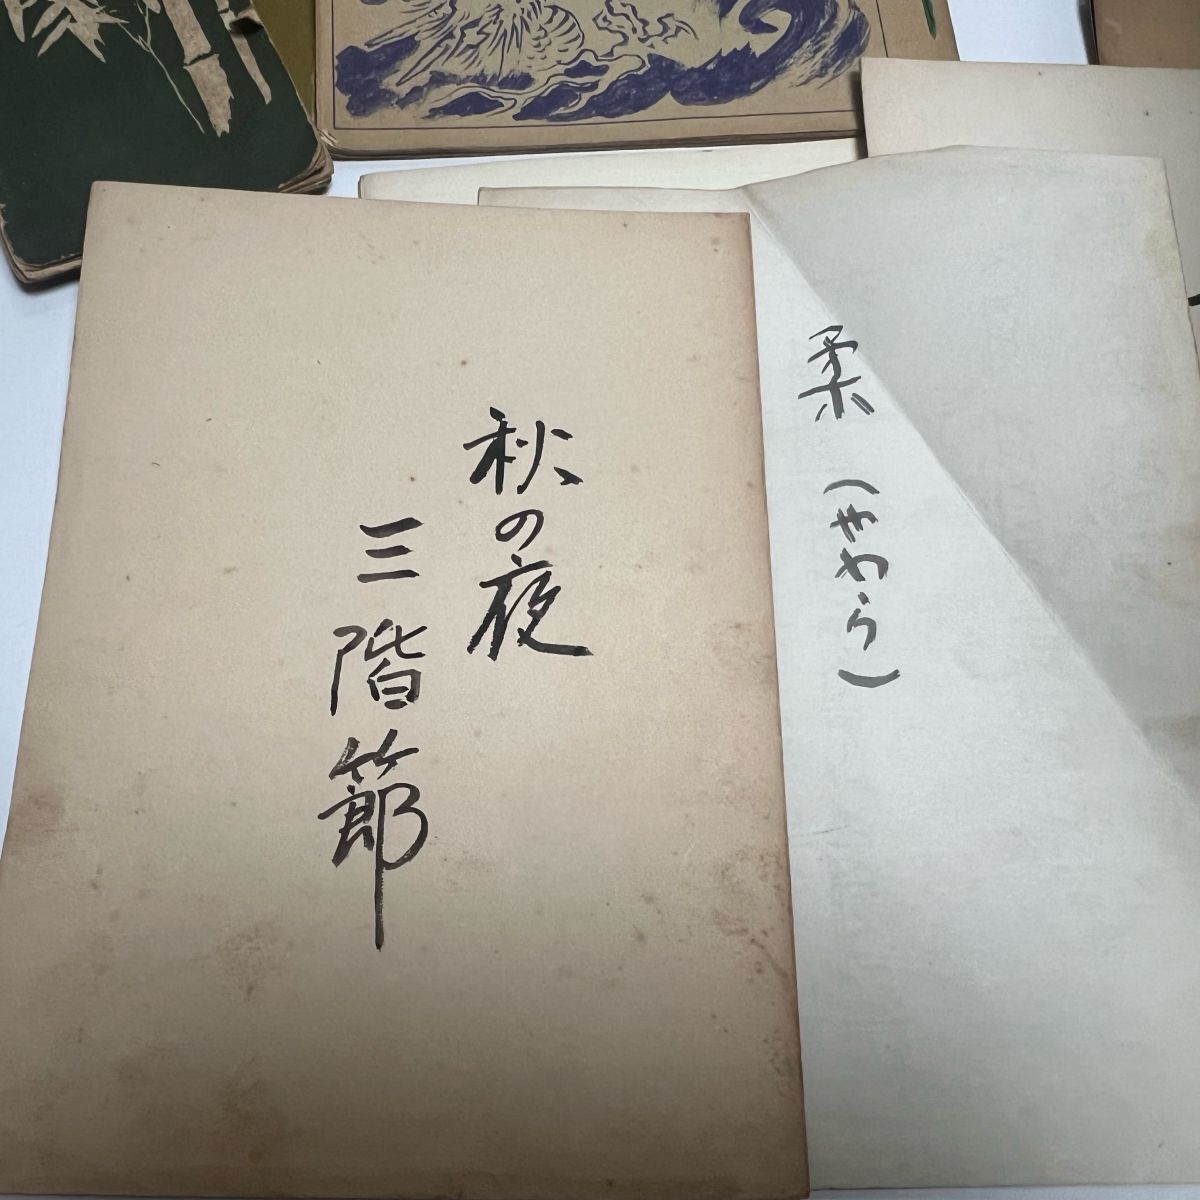 秋の夜
三階節
柔(やわら)